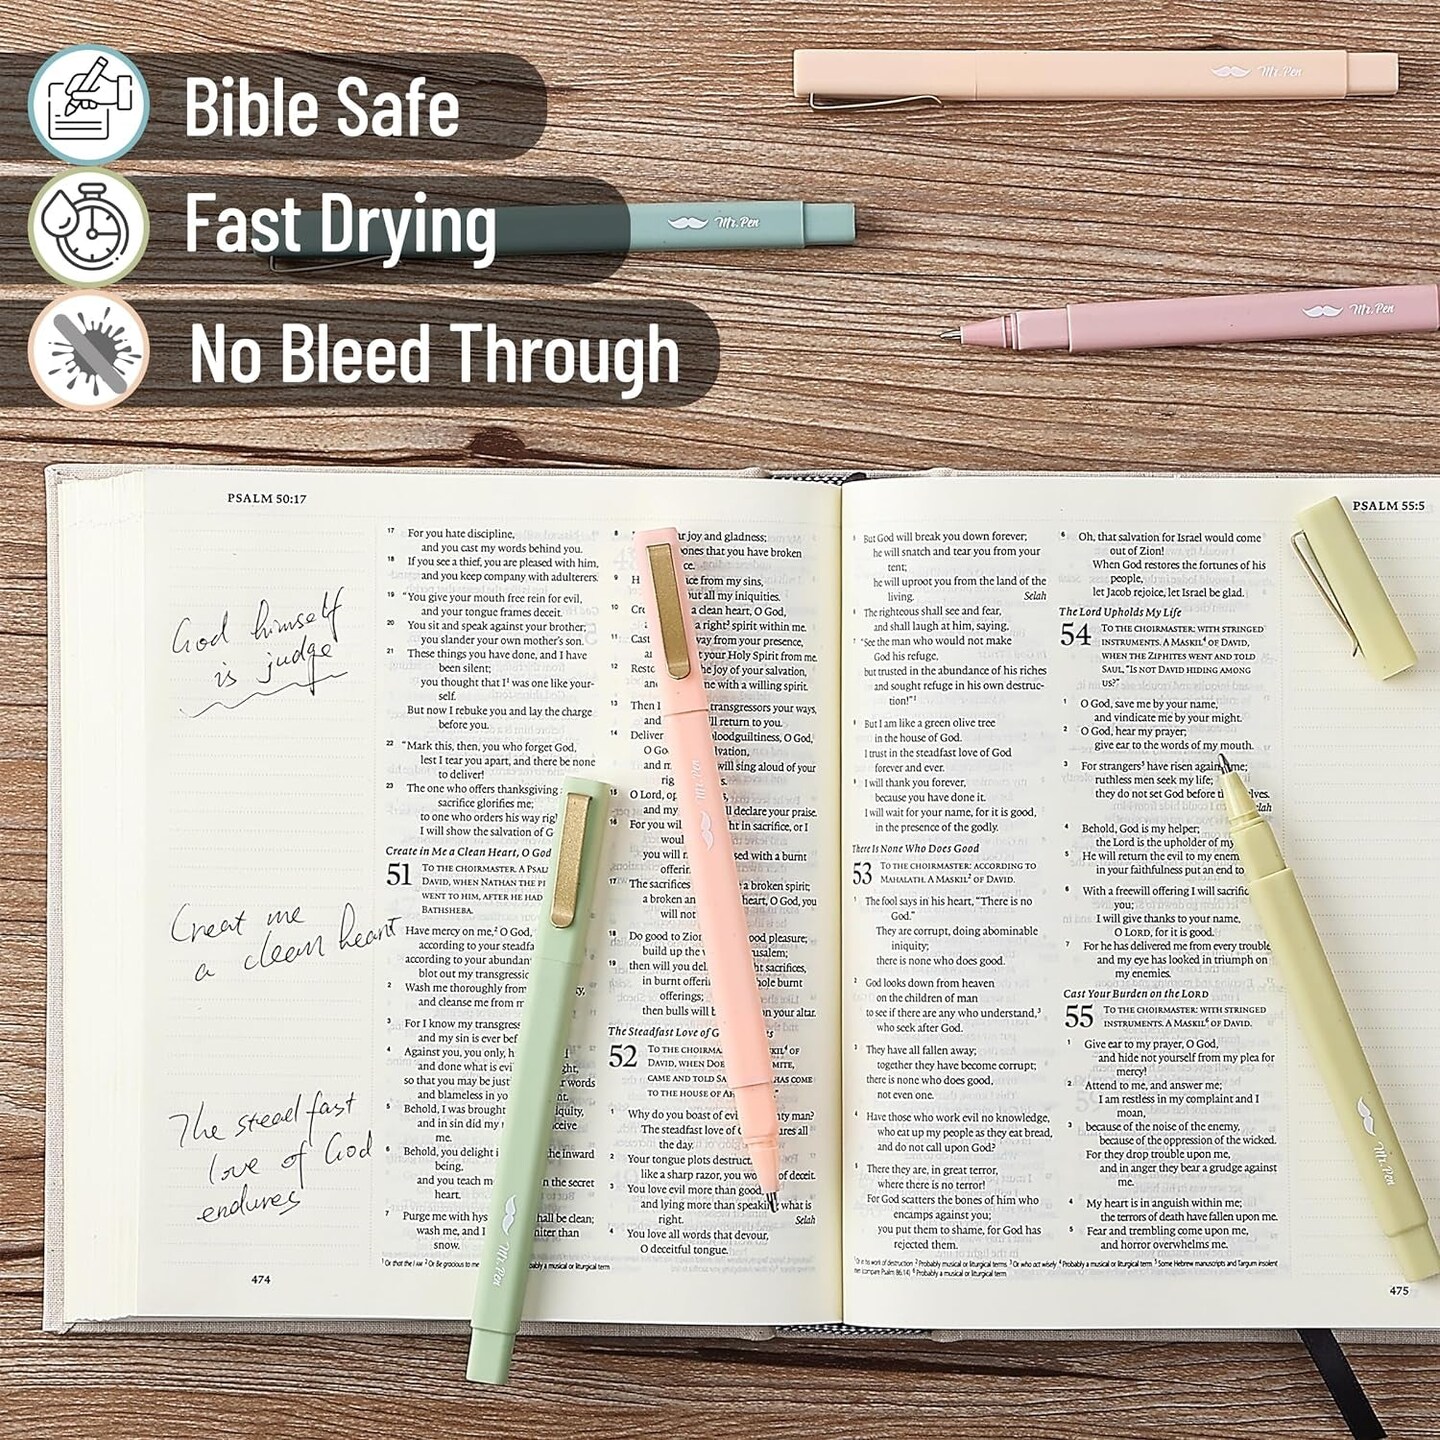 Bible Safe
Fast Drying
No Bleed Through
Mr. Pen
Mr. Pen
Mr. Pen
PSALM 50:17
God himself
is judge
Creat me
a clean heart
The steadfast
love of God
endures
17 For you hate discipline,
and you cast my words behind you.
18 If you see a thief, you are pleased with him,
and you keep company with adulterers.
19 "You give your mouth free rein for evil,
and your tongue frames deceit.
20 You sit and speak against your brother;
you slander your own mother's son.
21 These things you have done, and I have
been silent;
you thought that I¹ was one like your-
self.
But now I rebuke you and lay the charge
before you.
22 "Mark this, then, you who forget God,
lest I tear you apart, and there be none
to deliver!
23 The one who offers thanksgiving
sacrifice glorifies me;
to one who orders his way
I will show the salvation of
Create in Me a Clean Heart, O God
51 TO THE CHOIRMASTER. A
DAVID, WHEN NATHAN THE
WENT TO HIM, AFTER HE HAD
BATHSHEBA.
Have mercy on me,² O God,
according to your
according to your
blot out my
2 Wash me thoroughly from
and cleanse me from
3 For I know my
and my sin is
4 Against you, you only,
and done what is
so that you may be words
and blameless in
5 Behold, I was brought
and in sin did my
me.
6 Behold, you delight inward
being,
and you teach in the secret
heart.
7 Purge me with be clean;
wash me, and than
snow.
¹ Or that the I AM ² Or Be gracious to a musical or liturgical term
474
8 joy and gladness;
that you have broken
9 from my sins,
all my iniquities.
10 a clean heart, O God,
right³ spirit within me.
11 Cast from your presence,
your Holy Spirit from me.
12 the joy of your salvation,
with a willing spirit.
13 Then transgressors your ways,
and return to you.
14 Deliver O God,
O
will sing aloud of your
15 O Lord,
and my declare your praise.
16 For you will in sacrifice, or I
you will with a burnt
17 The sacrifices a broken spirit;
a broken heart, O God, you
will not
18 Do good to Zion pleasure;
build up the
19 then will you sacrifices,
in burnt burnt
offerings;
then bulls will on your altar.
The Steadfast Love of
52 TO THE OF
DAVID, WHEN
CAME AND TOLD HAS COME
TO THE HOUSE OF
1 Why do you boast of man?
The steadfast love of all
the day.
2 Your tongue plots
like a sharp razor, you of deceit.
3 You love evil more than good,
and lying more than speaking what is
right. Selah
4 You love all words that devour,
O deceitful tongue.
Mr. Pen
Mr. Pen
PSALM 55:5
5 But God will break you down forever;
he will snatch and tear you from your
tent;
he will uproot you from the land of the
living. Selah
6 The righteous shall see and fear,
and shall laugh at him, saying,
7 "See the man who would not make
God his refuge,
but trusted in the abundance of his riches
and sought refuge in his own destruc-
tion!"¹
8 But I am like a green olive tree
in the house of God.
I trust in the steadfast love of God
forever and ever.
9 I will thank you forever,
because you have done it.
I will wait for your name, for it is good,
in the presence of the godly.
There Is None Who Does Good
53 TO THE CHOIRMASTER: ACCORDING TO
MAHALATH. A MASKIL² OF DAVID.
1 The fool says in his heart, "There is no
God."
They are corrupt, doing abominable
iniquity;
there is none who does good.
2 God looks down from heaven
on the children of man
to see if there are any who understand,³
who seek after God.
3 They have all fallen away;
together they have become corrupt;
there is none who does good,
not even one.
4 Have those who work evil no knowledge,
who eat up my people as they eat bread,
and do not call upon God?
5 There they are, in great terror,
where there is no terror!
For God scatters the bones of him who
encamps against you;
you put them to shame, for God has
rejected them.
6 Oh, that salvation for Israel would come
out of Zion!
When God restores the fortunes of his
people,
let Jacob rejoice, let Israel be glad.
The Lord Upholds My Life
54 TO THE CHOIRMASTER: WITH STRINGED
INSTRUMENTS. A MASKIL⁴ OF DAVID,
WHEN THE ZIPHITES WENT AND TOLD
SAUL, "IS NOT DAVID HIDING AMONG
US?"
1 O God, save me by your name,
and vindicate me by your might.
2 O God, hear my prayer;
give ear to the words of my mouth.
3 For strangers⁵ have risen against me;
ruthless men seek my life;
they do not set God before
4 Behold, God is my helper;
the Lord is the upholder of my
5 He will return the evil to my
in your faithfulness put an end to
6 With a freewill offering I will
you;
I will give thanks to your name,
O LORD, for it is good.
7 For he has delivered me from every trouble,
and my eye has looked in triumph on
my enemies.
Cast Your Burden on the LORD
55 TO THE CHOIRMASTER: WITH STRINGED
INSTRUMENTS. A MASKIL⁴ OF DAVID.
1 Give ear to my prayer, O God,
and hide not yourself from my plea for
mercy!
2 Attend to me, and answer me;
I am restless in my complaint and I
moan,
3 because of the noise of the enemy,
because of the oppression of the wicked.
For they drop trouble upon me,
and in anger they bear a grudge against
me.
4 My heart is in anguish within me;
the terrors of death have fallen upon me.
5 Fear and trembling come upon me,
and horror overwhelms me.
¹ Or in his work of destruction ² Probably musical or liturgical terms ³ Or who act wisely ⁴ Probably a musical or liturgical term ⁵ Some Hebrew manuscripts and Targum insolent
men (compare Psalm 86:14) ⁶ Probably a musical or liturgical term
475
Mr. Pen